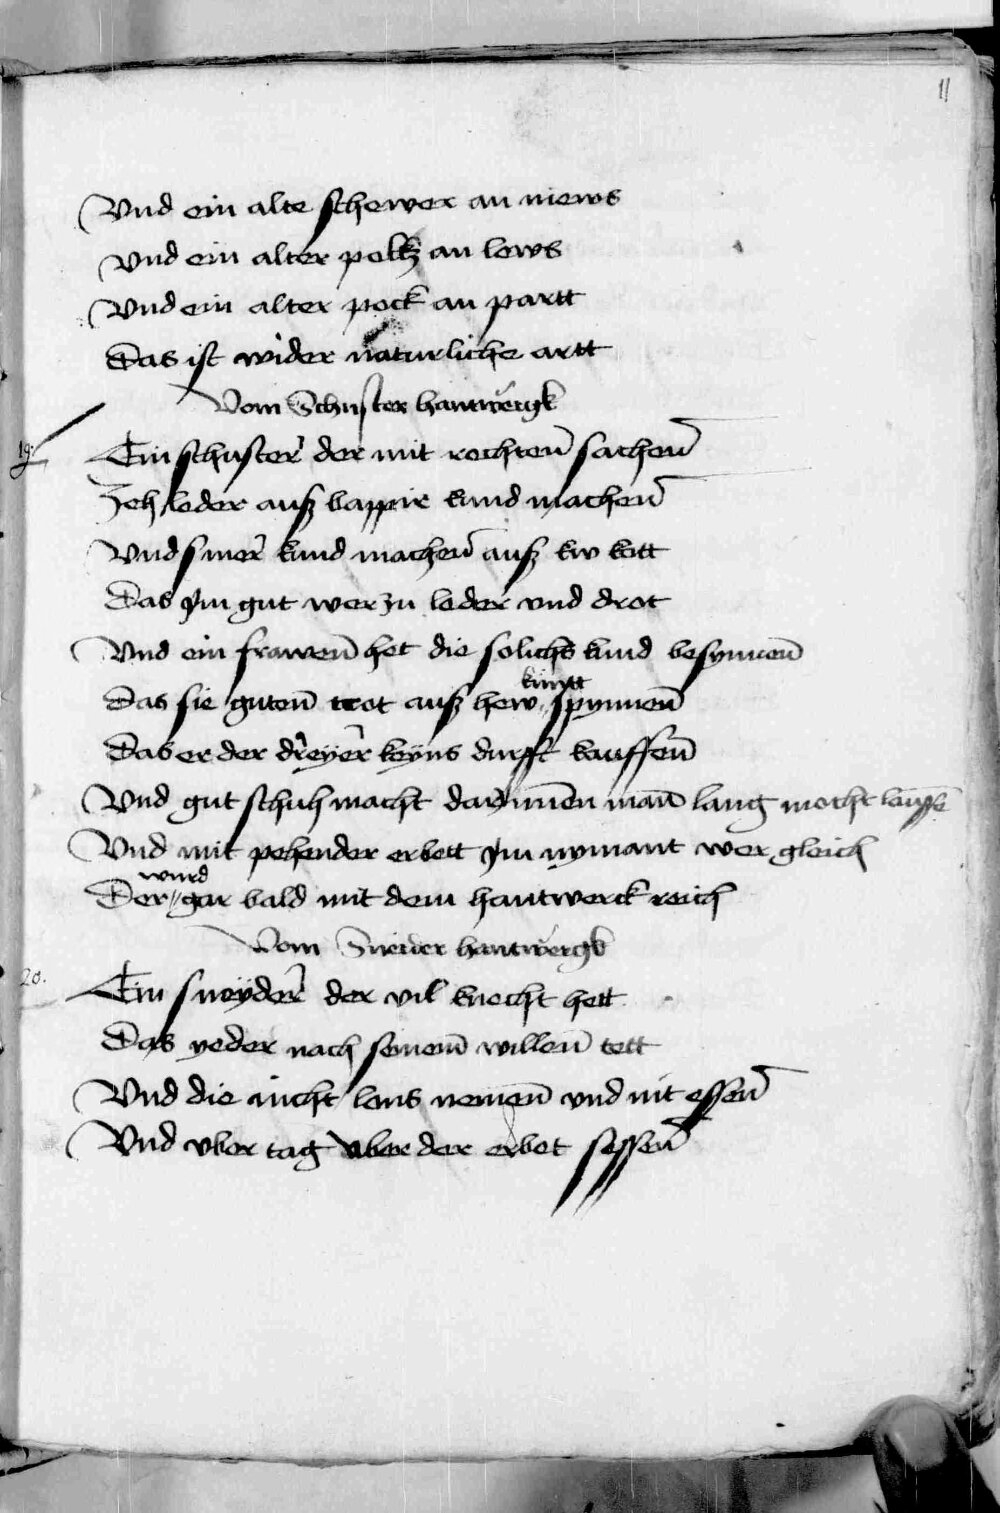 11
Vnd ein alte schewer an mews
Vnd ein alter peltz an lews
Vnd ein alter pock an partt
Das ist wider naturliche artt
Vom Schuster hantwergk
19. Ein schuster der mit rechten̄ sachen̄
Zeh leder auß bappir kund machen̄
Vnd smer kund machen̄ auß kw kott
Das Jm gut wer zu leder vnd drot
Vnd ein frawen̄ het die solichs kund besynnen̄
kuntt
Das sie guten̄ trot auß hew spynnen̄
Das er der dreyer keyns durfft kauffen̄
Vnd gut schuh macht dar Jnnen man̄ lang mocht lauffē
Vnd mit pehender erbett Jm nymant wer gleich
wurd
Der gar bald mit dem hantwerck reich
Vom Sneider hantwergk
20. Ein sneyder der vil knecht hett
Das yeder nach seinem̄ willen̄ tett
Vnd die nicht lons nemen̄ vnd nit essen̄
Vnd vber tag vber der erbet sessen̄